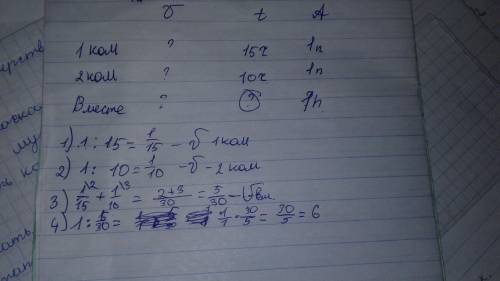 v t A
1 ком ? 15ч 1п
2 ком ? 10ч 1п
Вместе ? ? 1п
1) 1 : 15 = 1/15 - v 1 ком
2) 1 : 10 = 1/10 - v - 2 ком
3) 1/15 + 1/10 = 2+3/30 = 5/30 - v вм
4) 1 : 5/30 = 1/1 · 30/5 = 30/5 = 6